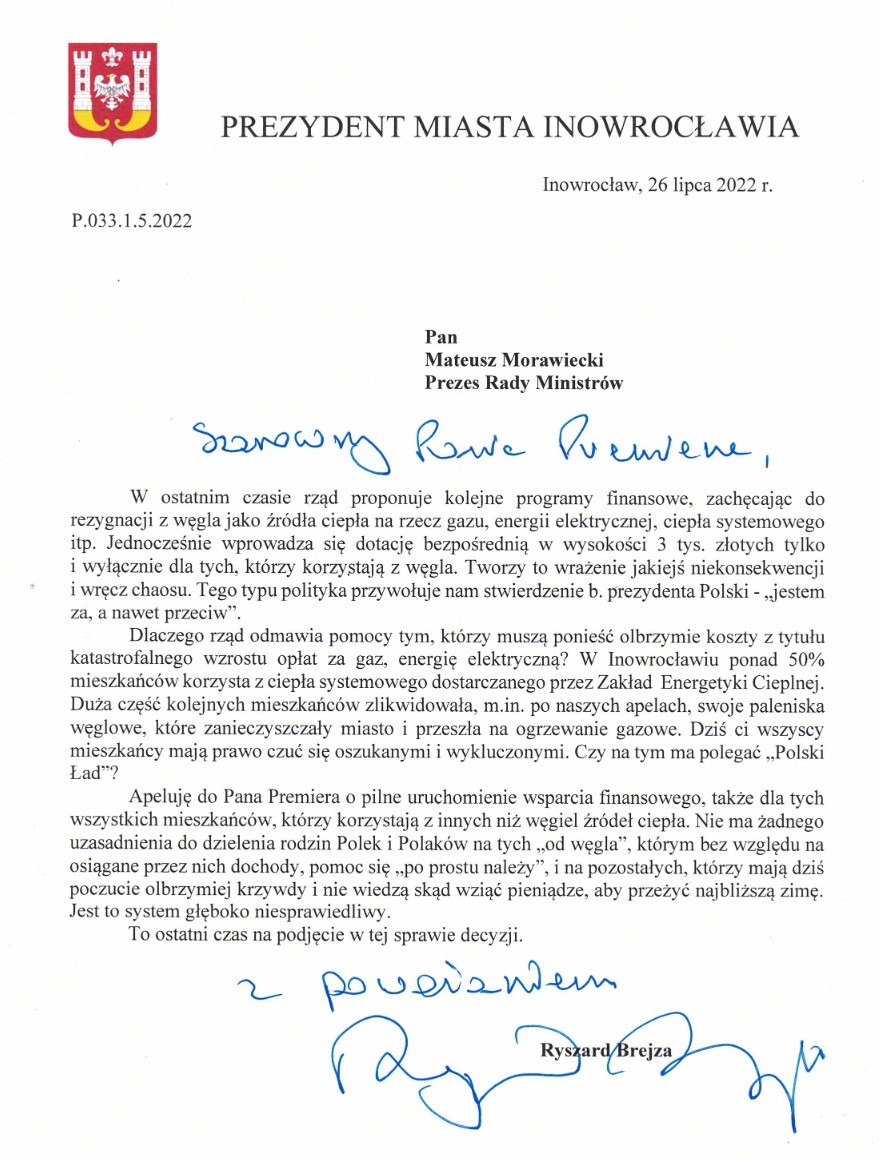 PREZYDENT MIASTA INOWROCŁAWIA
Inowrocław, 26 lipca 2022 r.
P.033.1.5.2022
Pan
Mateusz Morawiecki
Prezes Rady Ministrów
Szanowny Panie Premierze,
W ostatnim czasie rząd proponuje kolejne programy finansowe, zachęcając do
rezygnacji z węgla jako źródła ciepła na rzecz gazu, energii elektrycznej, ciepła systemowego
itp. Jednocześnie wprowadza się dotację bezpośrednią w wysokości 3 tys. złotych tylko
i wyłącznie dla tych, którzy korzystają z węgla. Tworzy to wrażenie jakiejś niekonsekwencji
i wręcz chaosu. Tego typu polityka przywołuje nam stwierdzenie b. prezydenta Polski - „jestem
za, a nawet przeciw”.
Dlaczego rząd odmawia pomocy tym, którzy muszą ponieść olbrzymie koszty z tytułu
katastrofalnego wzrostu opłat za gaz, energię elektryczną? W Inowrocławiu ponad 50%
mieszkańców korzysta z ciepła systemowego dostarczanego przez Zakład Energetyki Cieplnej.
Duża część kolejnych mieszkańców zlikwidowała, m.in. po naszych apelach, swoje paleniska
węglowe, które zanieczyszczały miasto i przeszła na ogrzewanie gazowe. Dziś ci wszyscy
mieszkańcy mają prawo czuć się oszukanymi i wykluczonymi. Czy na tym ma polegać „Polski
Ład”?
Apeluję do Pana Premiera o pilne uruchomienie wsparcia finansowego, także dla tych
wszystkich mieszkańców, którzy korzystają z innych niż węgiel źródeł ciepła. Nie ma żadnego
uzasadnienia do dzielenia rodzin Polek i Polaków na tych „od węgla”, którym bez względu na
osiągane przez nich dochody, pomoc się „po prostu należy”, i na pozostałych, którzy mają dziś
poczucie olbrzymiej krzywdy i nie wiedzą skąd wziąć pieniądze, aby przeżyć najbliższą zimę.
Jest to system głęboko niesprawiedliwy.
To ostatni czas na podjęcie w tej sprawie decyzji.
z poważaniem
Ryszard Brejza